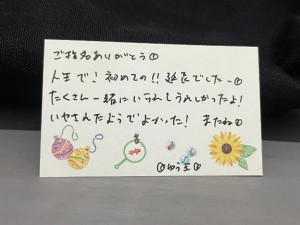 ご指名ありがとう①
人生で!初めての!!延長でした-①
たくさん一緒にいられてうれしかったよ!
いやされたようでよかった! またね①